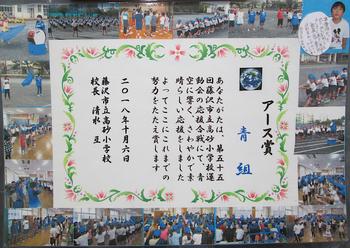 アース賞
青組
あなたがたは、第五十五
回藤沢市立高砂小学校運
動会の応援合戦で、青い
空に響く、さわやかで素
晴らしい応援をしました
よってここにこれまでの
努力をたたえ賞します
二〇一八年十月六日
藤沢市立高砂小学校
校長 清水 亘